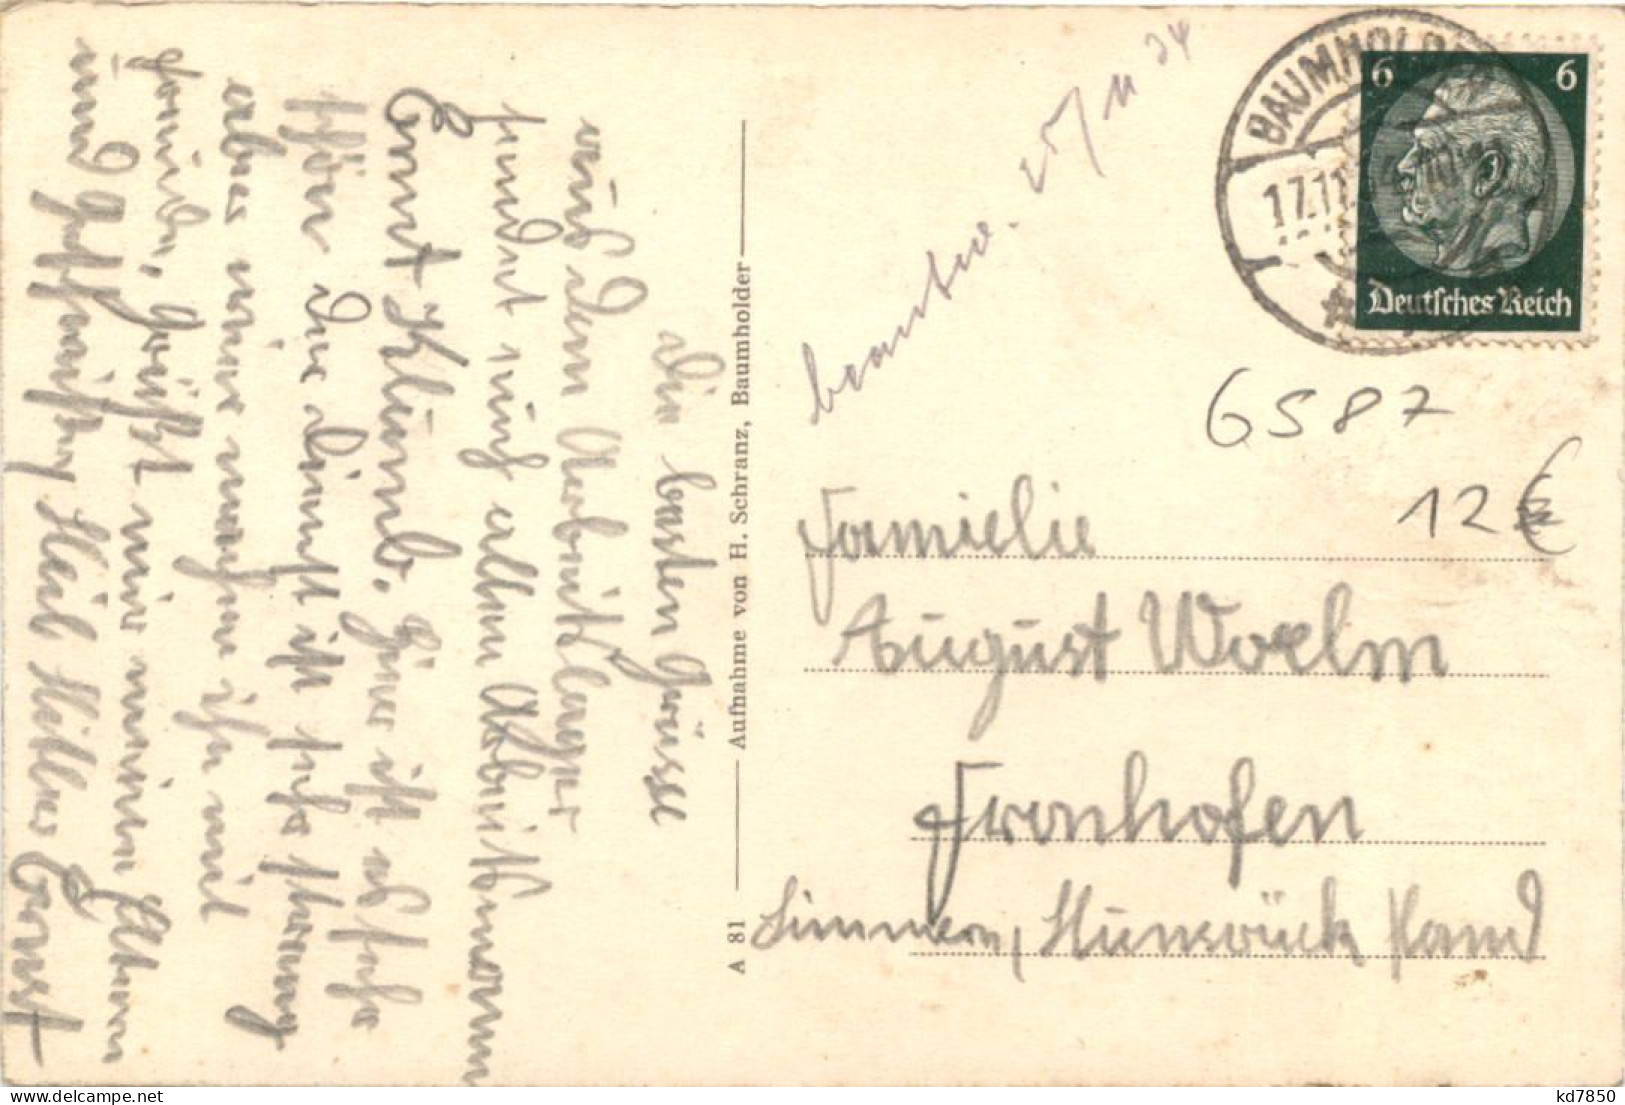 Die besten Grüsse
aus dem Arbeitslager
sendet euch allen Arbeitsmann
Ernst Klumb. Hier ist es sehr
schön der Dienst ist sehr streng
aber wir machen ihn mit
Freude, Grüßt mir meine Eltern
und Geschwister, Heil Hitler Ernst
A 81 Aufnahme von H. Schranz, Baumholder
beantw. 25/11 34
BAUMHOLDER
17.11.
6 6
Deutsches Reich
6587
12 €
Familie
August Woelm
Fronhofen
Simmern, Hunsrück Land
kd7850